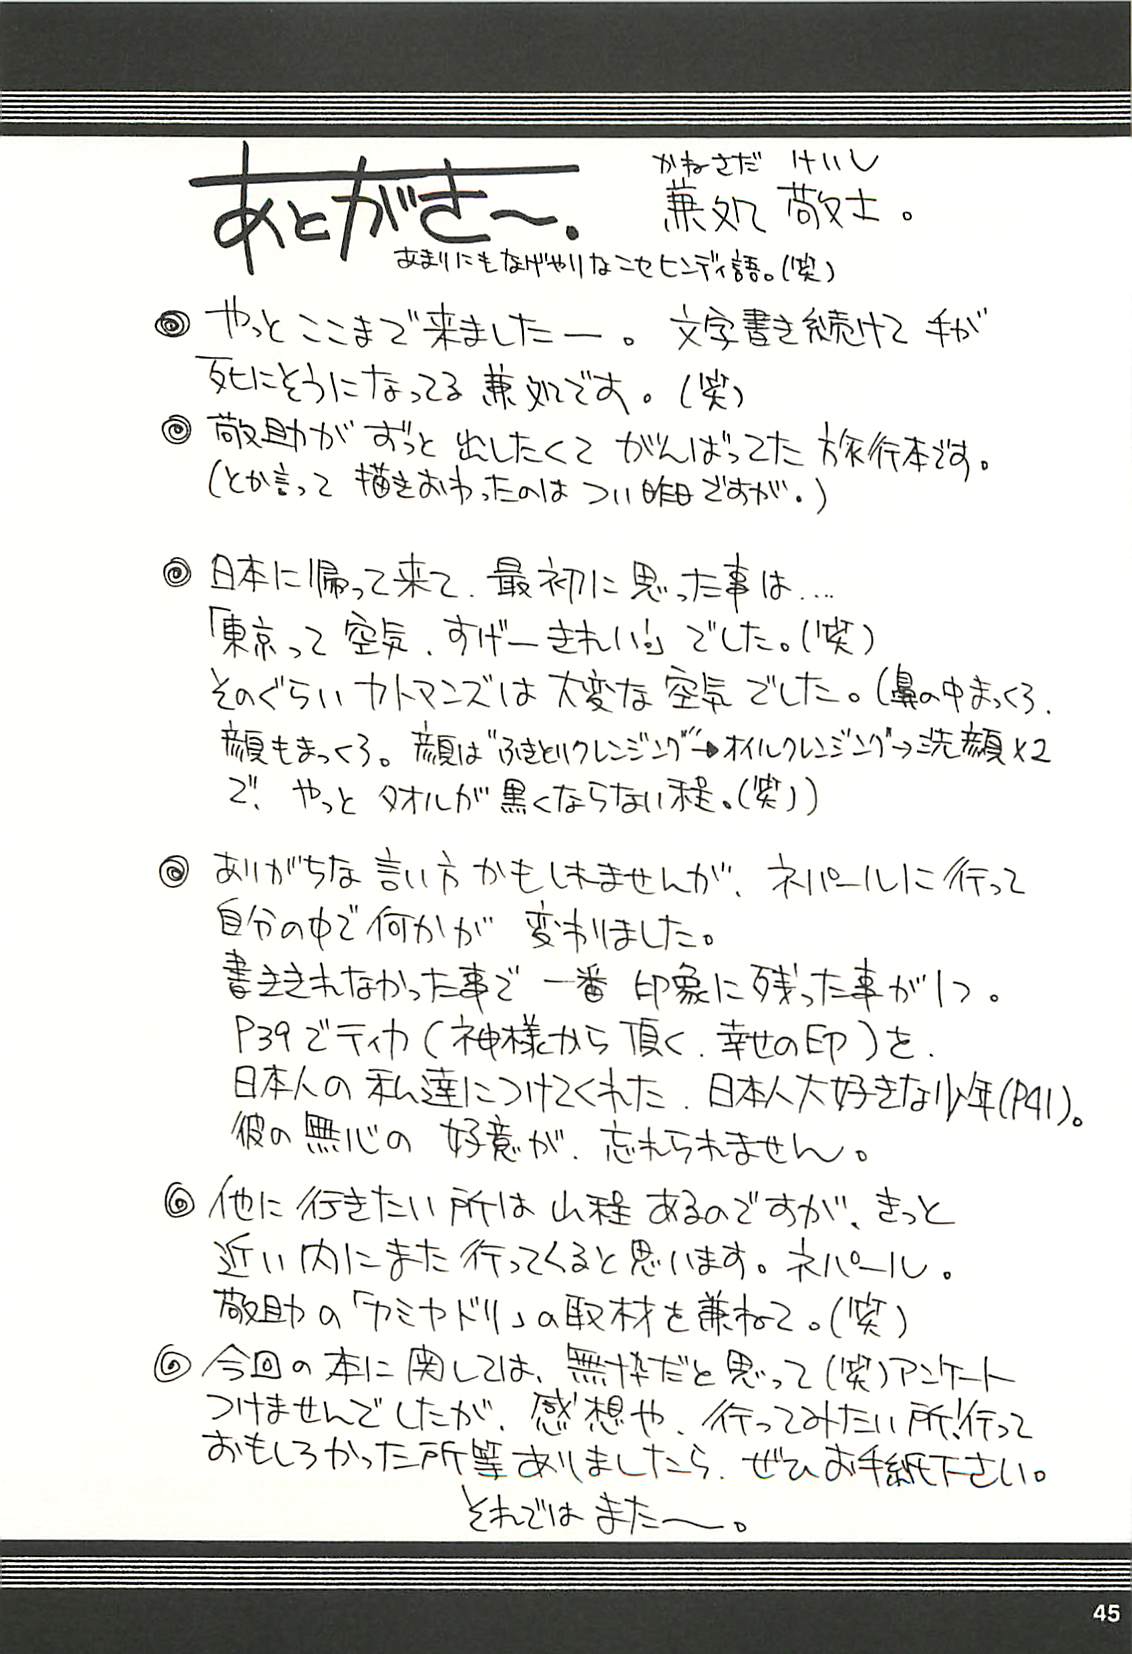 かねさだ けいし
あとがき〜。 兼処 敬士。
あまりにもなげやりなニセヒンディ語。(笑)
◎ やっとここまで来ましたー。 文字書き続けて 手が
死にそうになってる 兼処です。(笑)
◎ 敬助が ずっと 出したくて がんばってた 旅行本です。
(とか言って 描きおわったのは つい昨日ですが。)
◎ 日本に帰って来て、最初に思った事は‥‥
「東京って 空気、すげーきれい!」でした。(笑)
そのぐらい カトマンズは 大変な 空気でした。(鼻の中まっくろ、
顔もまっくろ。顔は“ふきとりクレンジング”→オイルクレンジング→洗顔×2
で、やっと タオルが 黒くならない程。(笑))
◎ ありがちな 言い方かもしれませんが、ネパールに行って
自分の中で何かが 変わりました。
書ききれなかった事で 一番 印象に残った事が1つ。
P39でティカ(神様から頂く、幸せの印)を、
日本人の私達につけてくれた、日本人大好きな少年(P41)。
彼の無心の 好意が、忘れられません。
◎ 他に行きたい所は 山程あるのですが、きっと
近い内にまた行ってくると思います。ネパール。
敬助の「カミヤドリ」の取材を兼ねて。(笑)
◎ 今回の本に関しては、無粋だと思って(笑)アンケート
つけませんでしたが、感想や、行ってみたい所、行って
おもしろかった所等ありましたら、ぜひお手紙下さい。
それではまた〜。
45